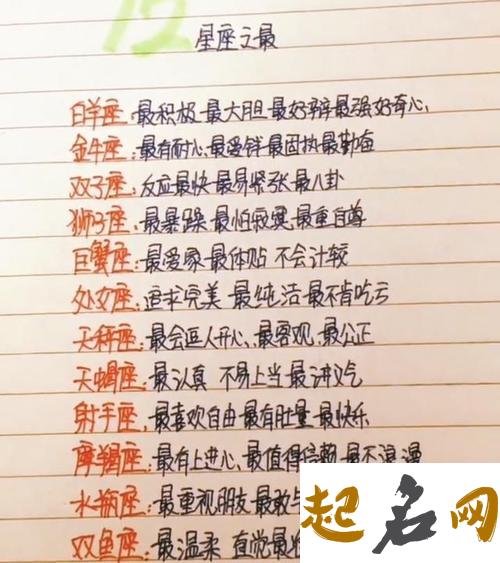 12
星座之最
白羊座:最积极 最大胆 最好辩 最强好奇心
金牛座:最有耐心、最爱钱 最固执 最勤奋
双子座:反应最快 最易紧张 最八卦
狮子座:最暴躁 最怕寂寞 最重自尊
巨蟹座:最爱家 最体贴 不会计较
处女座:追求完美 最纯洁 最不肯吃亏
天秤座:最会逗人开心、最客观、最公正
天蝎座:最认真 不易上当 最讲义气
射手座:最喜欢自由 最有肚量 最快乐
摩羯座:最有上进心、最值得信赖 最不浪漫
水瓶座:最重视朋友 最敢与
双鱼座:最温柔 直觉最
起名网